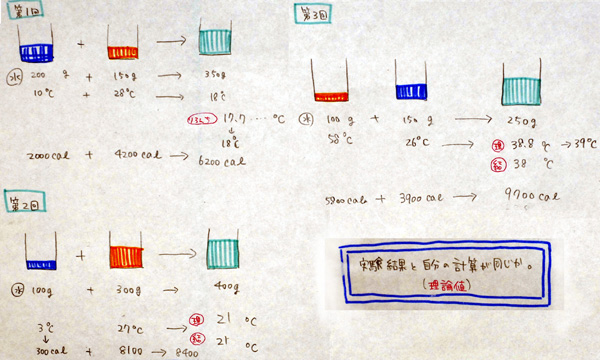 第1回
水 200 g + 150g → 350g
10℃ + 28℃ → 18℃
17.7 …… ℃
↓
18℃
2000cal + 4200cal → 6200cal
第2回
水 100g + 300g → 400g
3℃ 27℃ → 理 21 ℃
↓ 結 21 ℃
300cal + 8100 → 8400
第3回
水 100 g + 150 g → 250g
58℃ 26℃ → 理 38.8 ℃ → 39℃
結 38 ℃
5800cal + 3900cal → 9700cal
実験結果と自分の計算が同じか。
(理論値)